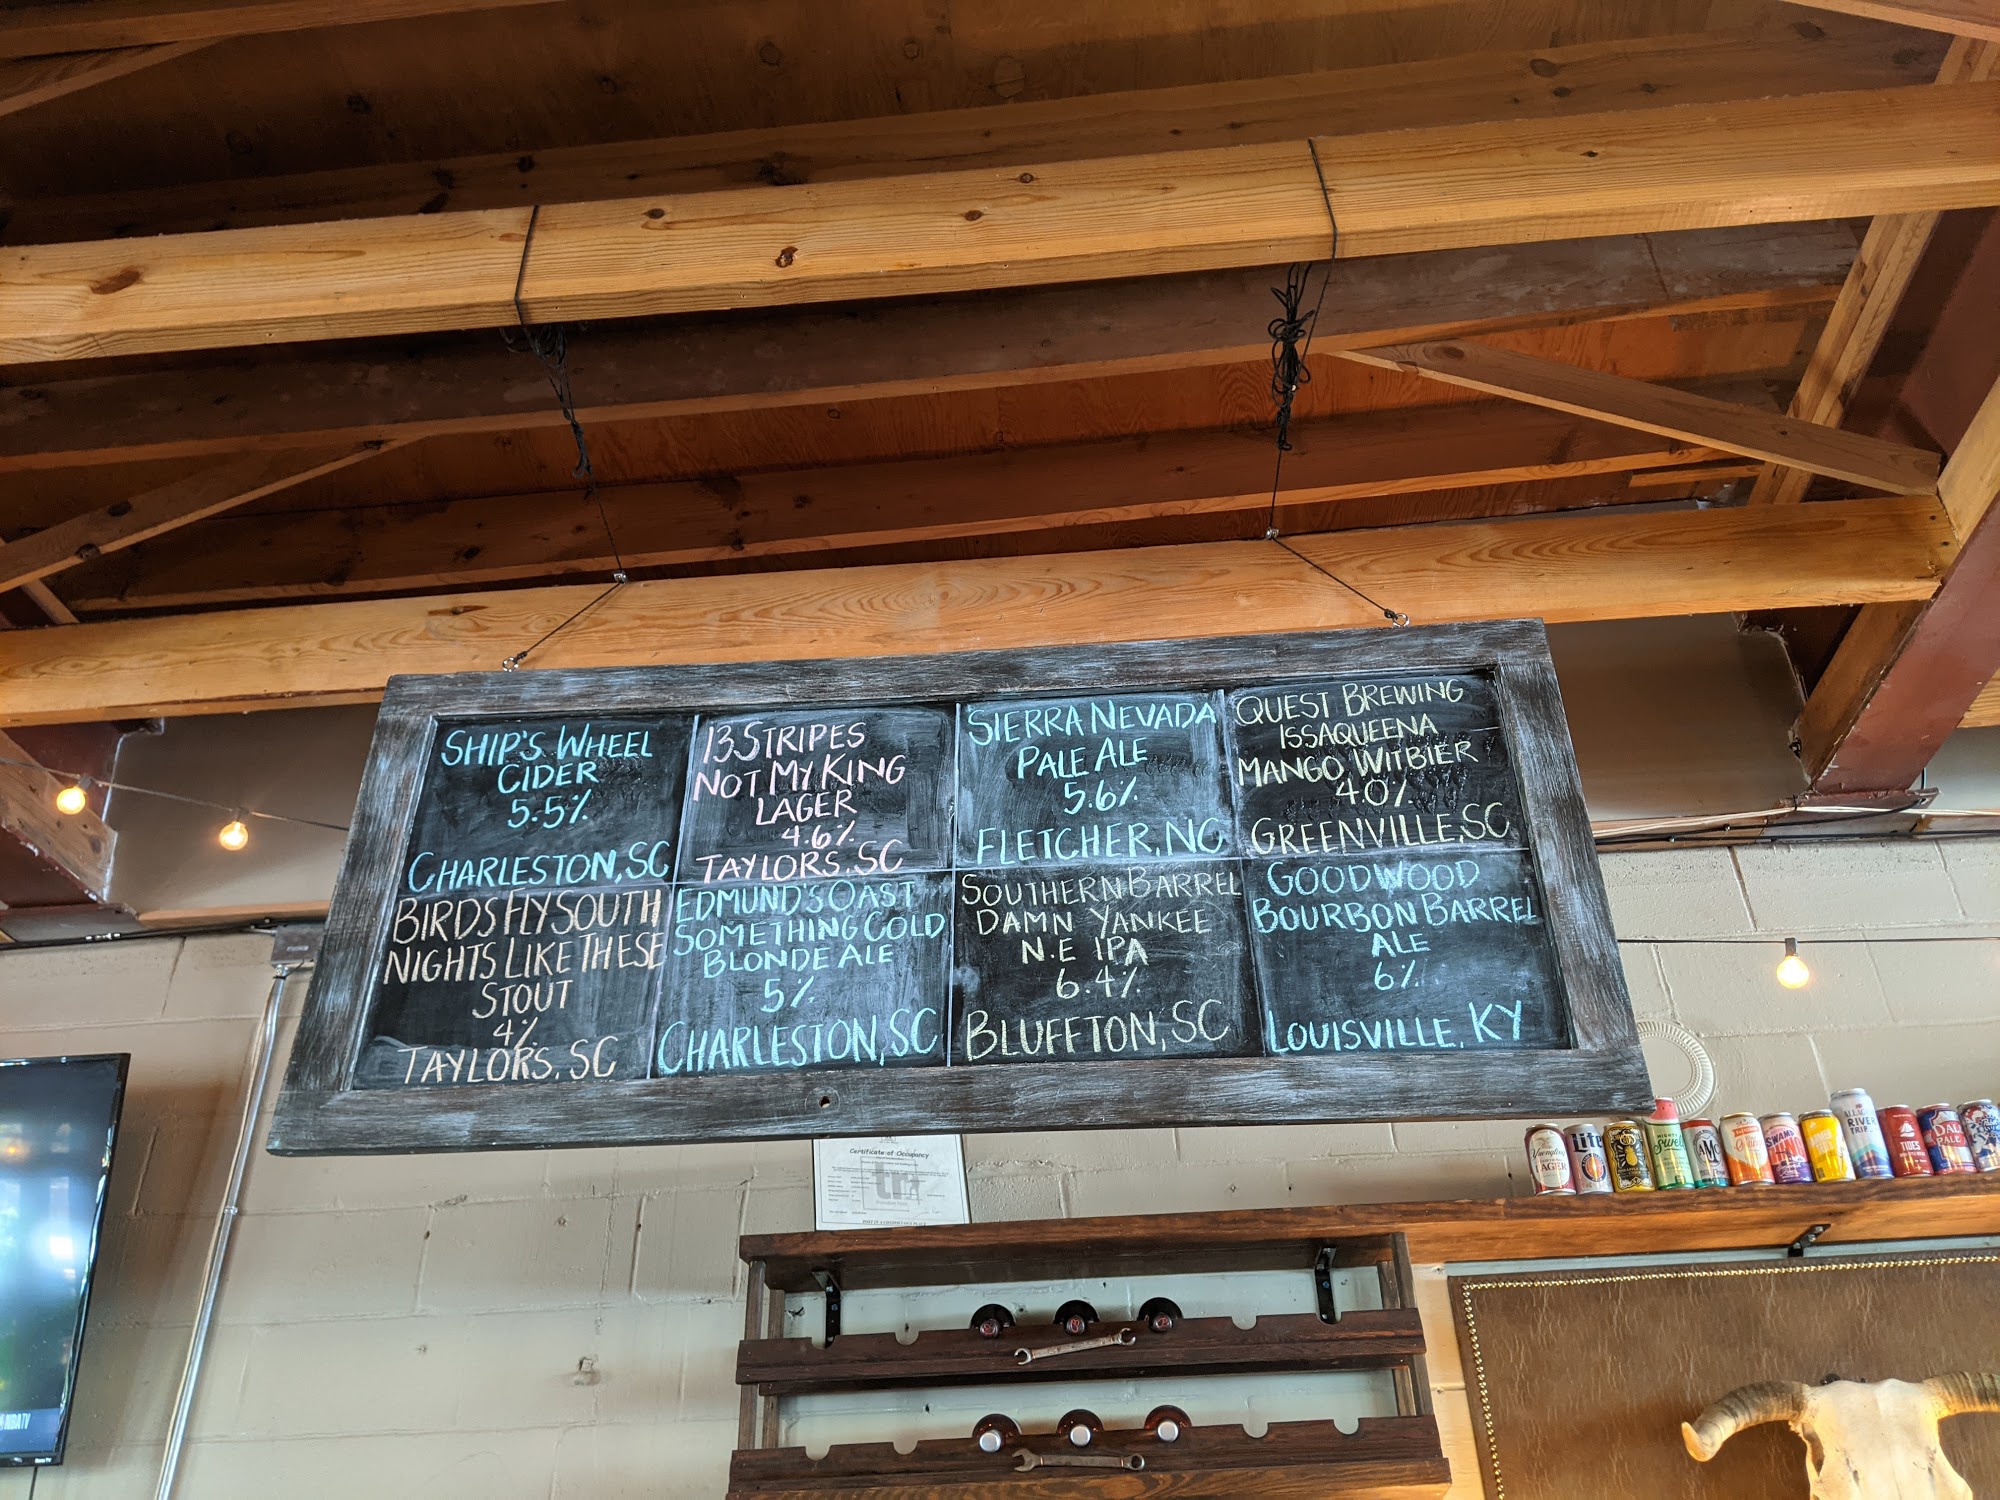 SHIP'S WHEEL
CIDER
5.5%
CHARLESTON, SC
13 STRIPES
NOT MY KING
LAGER
4.6%
TAYLORS, SC
SIERRA NEVADA
PALE ALE
5.6%
FLETCHER, NC
QUEST BREWING
ISSAQUEENA
MANGO WITBIER
4.0%
GREENVILLE, SC
BIRDS FLY SOUTH
NIGHTS LIKE THESE
STOUT
4%
TAYLORS, SC
EDMUND'S OAST
SOMETHING COLD
BLONDE ALE
5%
CHARLESTON, SC
SOUTHERN BARREL
DAMN YANKEE
N.E IPA
6.4%
BLUFFTON, SC
GOODWOOD
BOURBON BARREL
ALE
6%
LOUISVILLE, KY
Certificate of Occupancy
Yuengling
LAGER
Lite
RIVER
TRIP
TIDES
PALE
NBA TV
Roku TV